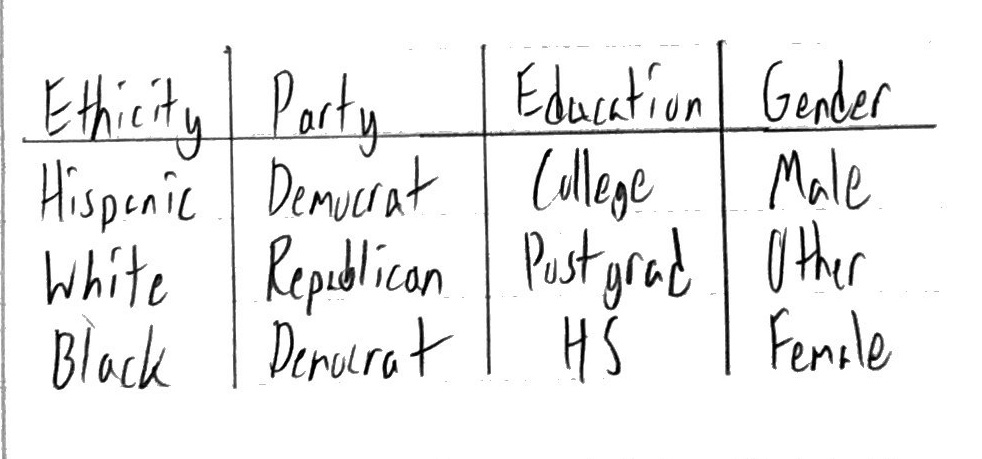 Ethicity Party Education Gender
Hispanic Democrat College Male
White Republican Postgrad Other
Black Democrat HS Female